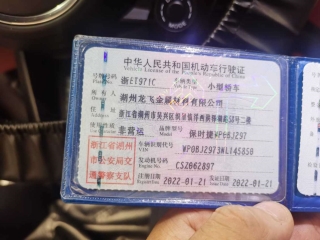 中华人民共和国机动车行驶证
Vehicle License of the People's Republic of China
号牌号码 浙ET971C 车辆类型 小型轿车
所有人 湖州龙飞金属材料有限公司
住址 浙江省湖州市吴兴区织里镇
使用性质 非营运 品牌型号 保时捷WP0BJ297
浙江省湖州市公安局交通警察支队
车辆识别代号 VIN WP0BJ2973WL145850
发动机号码 CSZ062897
注册日期 2022-01-21 发证日期 2022-01-21